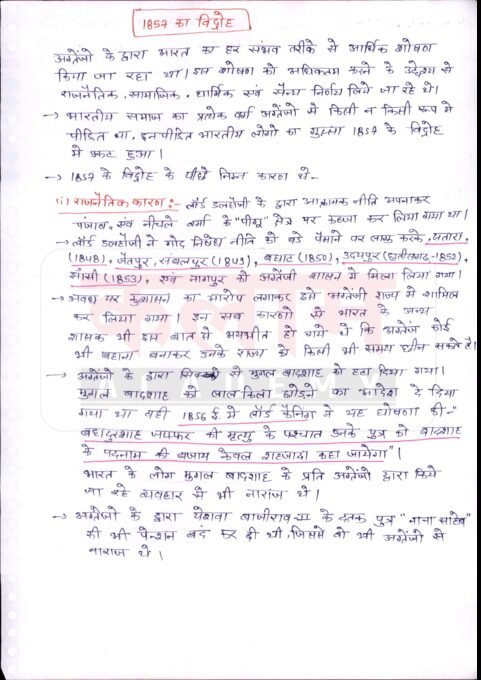 1857 का विद्रोह
अंग्रेजो के द्वारा भारत का हर संभव तरीके से आर्थिक शोषण
किया जा रहा था। इस शोषण को अधिकतम करने के उद्देश्य से
राजनैतिक, सामाजिक, धार्मिक एवं सैना निर्णय लिये जा रहे थे।
→ भारतीय समाज का प्रत्येक वर्ग अंग्रेजो से किसी न किसी रूप मे
पीडित था, इन पीडित भारतीय लोगो का गुस्सा 1857 के विद्रोह
मे प्रकट हुआ।
→ 1857 के विद्रोह के पीछे निम्न कारण थे-
(i) राजनैतिक कारण :- लॉर्ड डलहौजी के द्वारा आक्रामक नीति अपनाकर
पंजाब, एवं नीचले बर्मा के "पीगू" क्षेत्र पर कब्जा कर लिया गया था।
→ लॉर्ड डलहौजी ने गोद निषेध नीति को बडे पैमाने पर लागू करके, सतारा,
(1848), जैतपुर, संबलपुर (1849), बघाट (1850), उदयपुर (छत्तीसगढ़-1852),
झाँसी (1853), एवं नागपुर को अंग्रेजी शासन मे मिला लिया गया।
→ अवध पर कुशासन का आरोप लगाकर इसे अंग्रेजी राज्य मे शामिल
कर लिया गया। इन सब कारणो से भारत के अन्य
शासक भी इस बात से भयभीत हो गये थे कि अंग्रेज कोई
भी बहाना बनाकर उनके राज्य को किसी भी समय छीन सकते है।
→ अंग्रेजो के द्वारा सिक्को से मुगल बादशाह को हटा दिया गया।
मुगल बादशाह को लाल किला छोडने का आदेश दे दिया
गया था वही 1856 ई. मे लॉर्ड कैनिंग ने यह घोषणा की-"
बहादुरशाह जफर की मृत्यु के पश्चात उनके पुत्र को बादशाह
के पदनाम की बजाय केवल शहजादा कहा जायेगा"।
भारत के लोग मुगल बादशाह के प्रति अंग्रेजो द्वारा किये
जा रहे व्यवहार से भी नाराज थे।
→ अंग्रेजो के द्वारा पेशवा बाजीराव-II के दत्तक पुत्र "नाना साहेब"
की भी पेन्शन बंद कर दी थी, जिससे वो भी अंग्रेजो से
नाराज थे।
ACADEMY